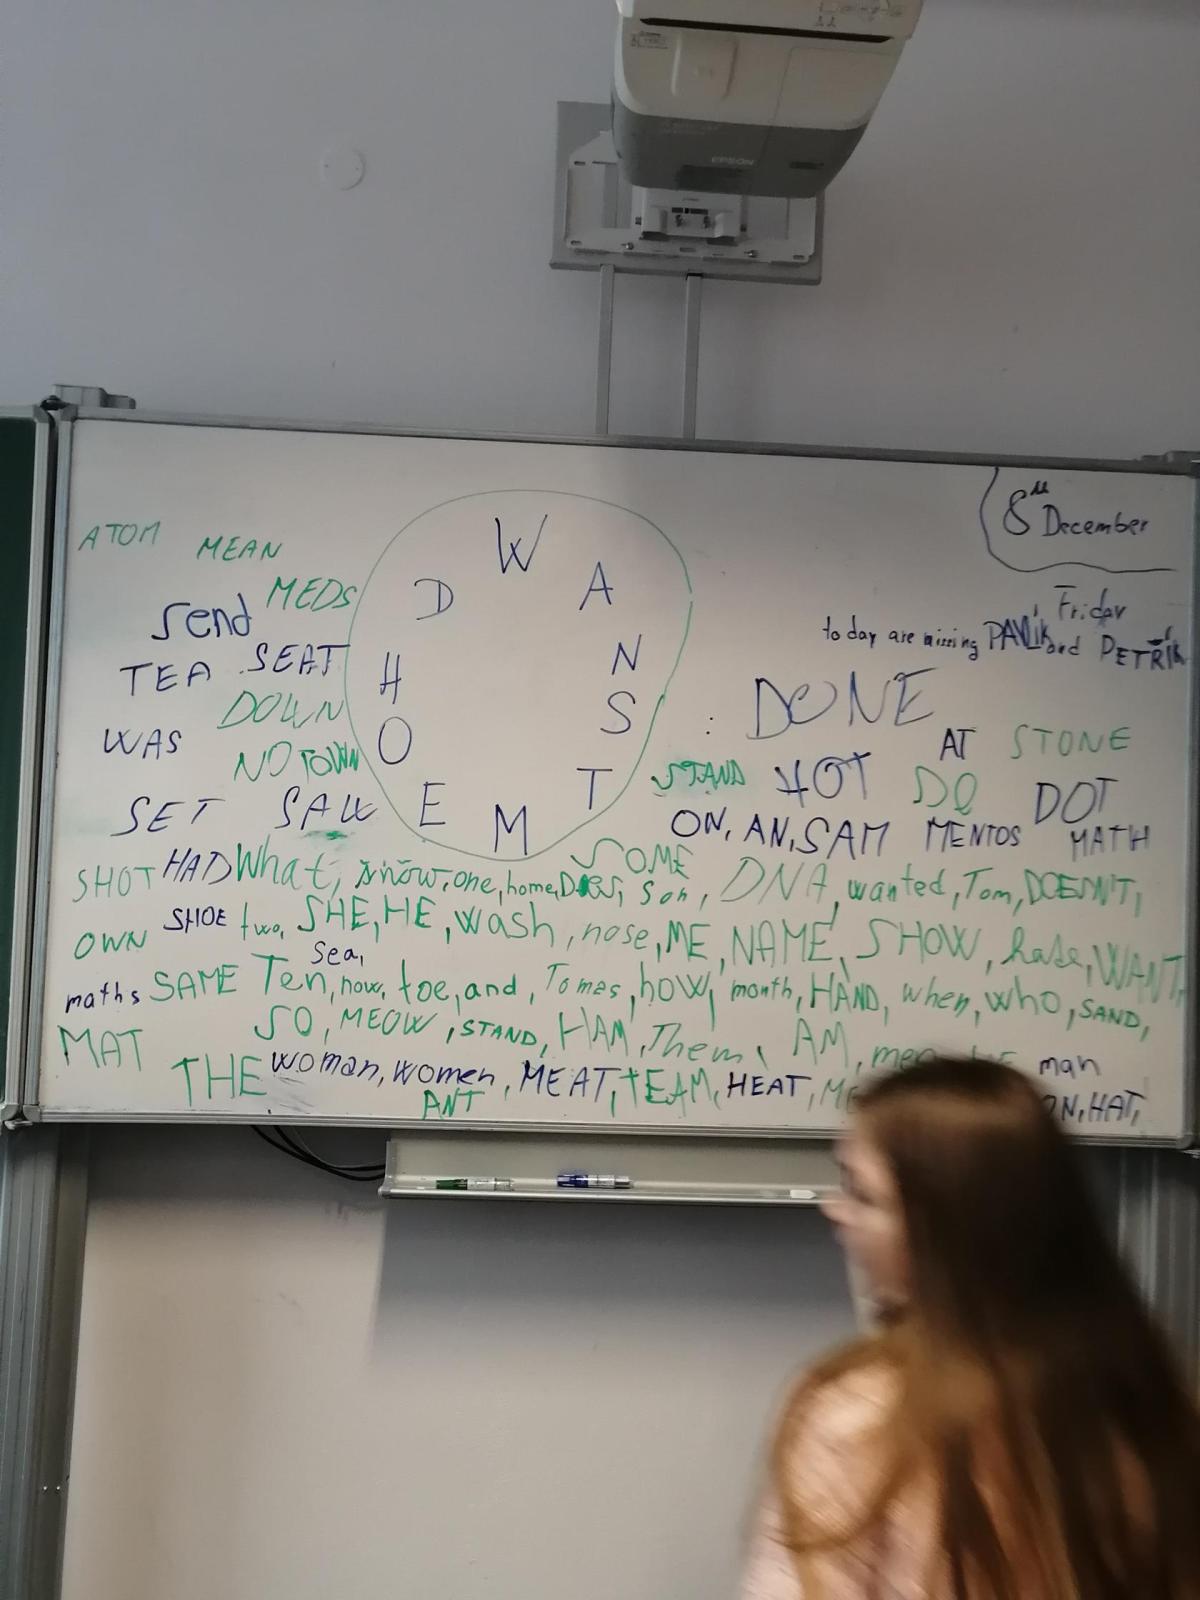 EPSON
8th December
Friday
today are missing PAVLÍK and PETŘÍK
ATOM MEAN
MEDS
send
TEA SEAT
DOWN
WAS
NO TOWN
SET SAW
W
D A
H N
O S
E T
M
: DONE
AT STONE
STAND HOT DO DOT
ON, AN, SAM MENTOS MATH
SOME
SHOT HAD What, know, one, home, DOES, son, DNA, wanted, Tom, DOESN'T,
OWN SHOE two, SHE, HE, wash, nose, ME, NAME, SHOW, hate, WANT,
sea,
maths SAME Ten, now, toe, and, Tomas, how, month, HAND, when, who, SAND,
MAT SO, MEOW, STAND, HAM, Them, AM, man
THE woman, women, MEAT, TEAM, HEAT, HAT,
ANT